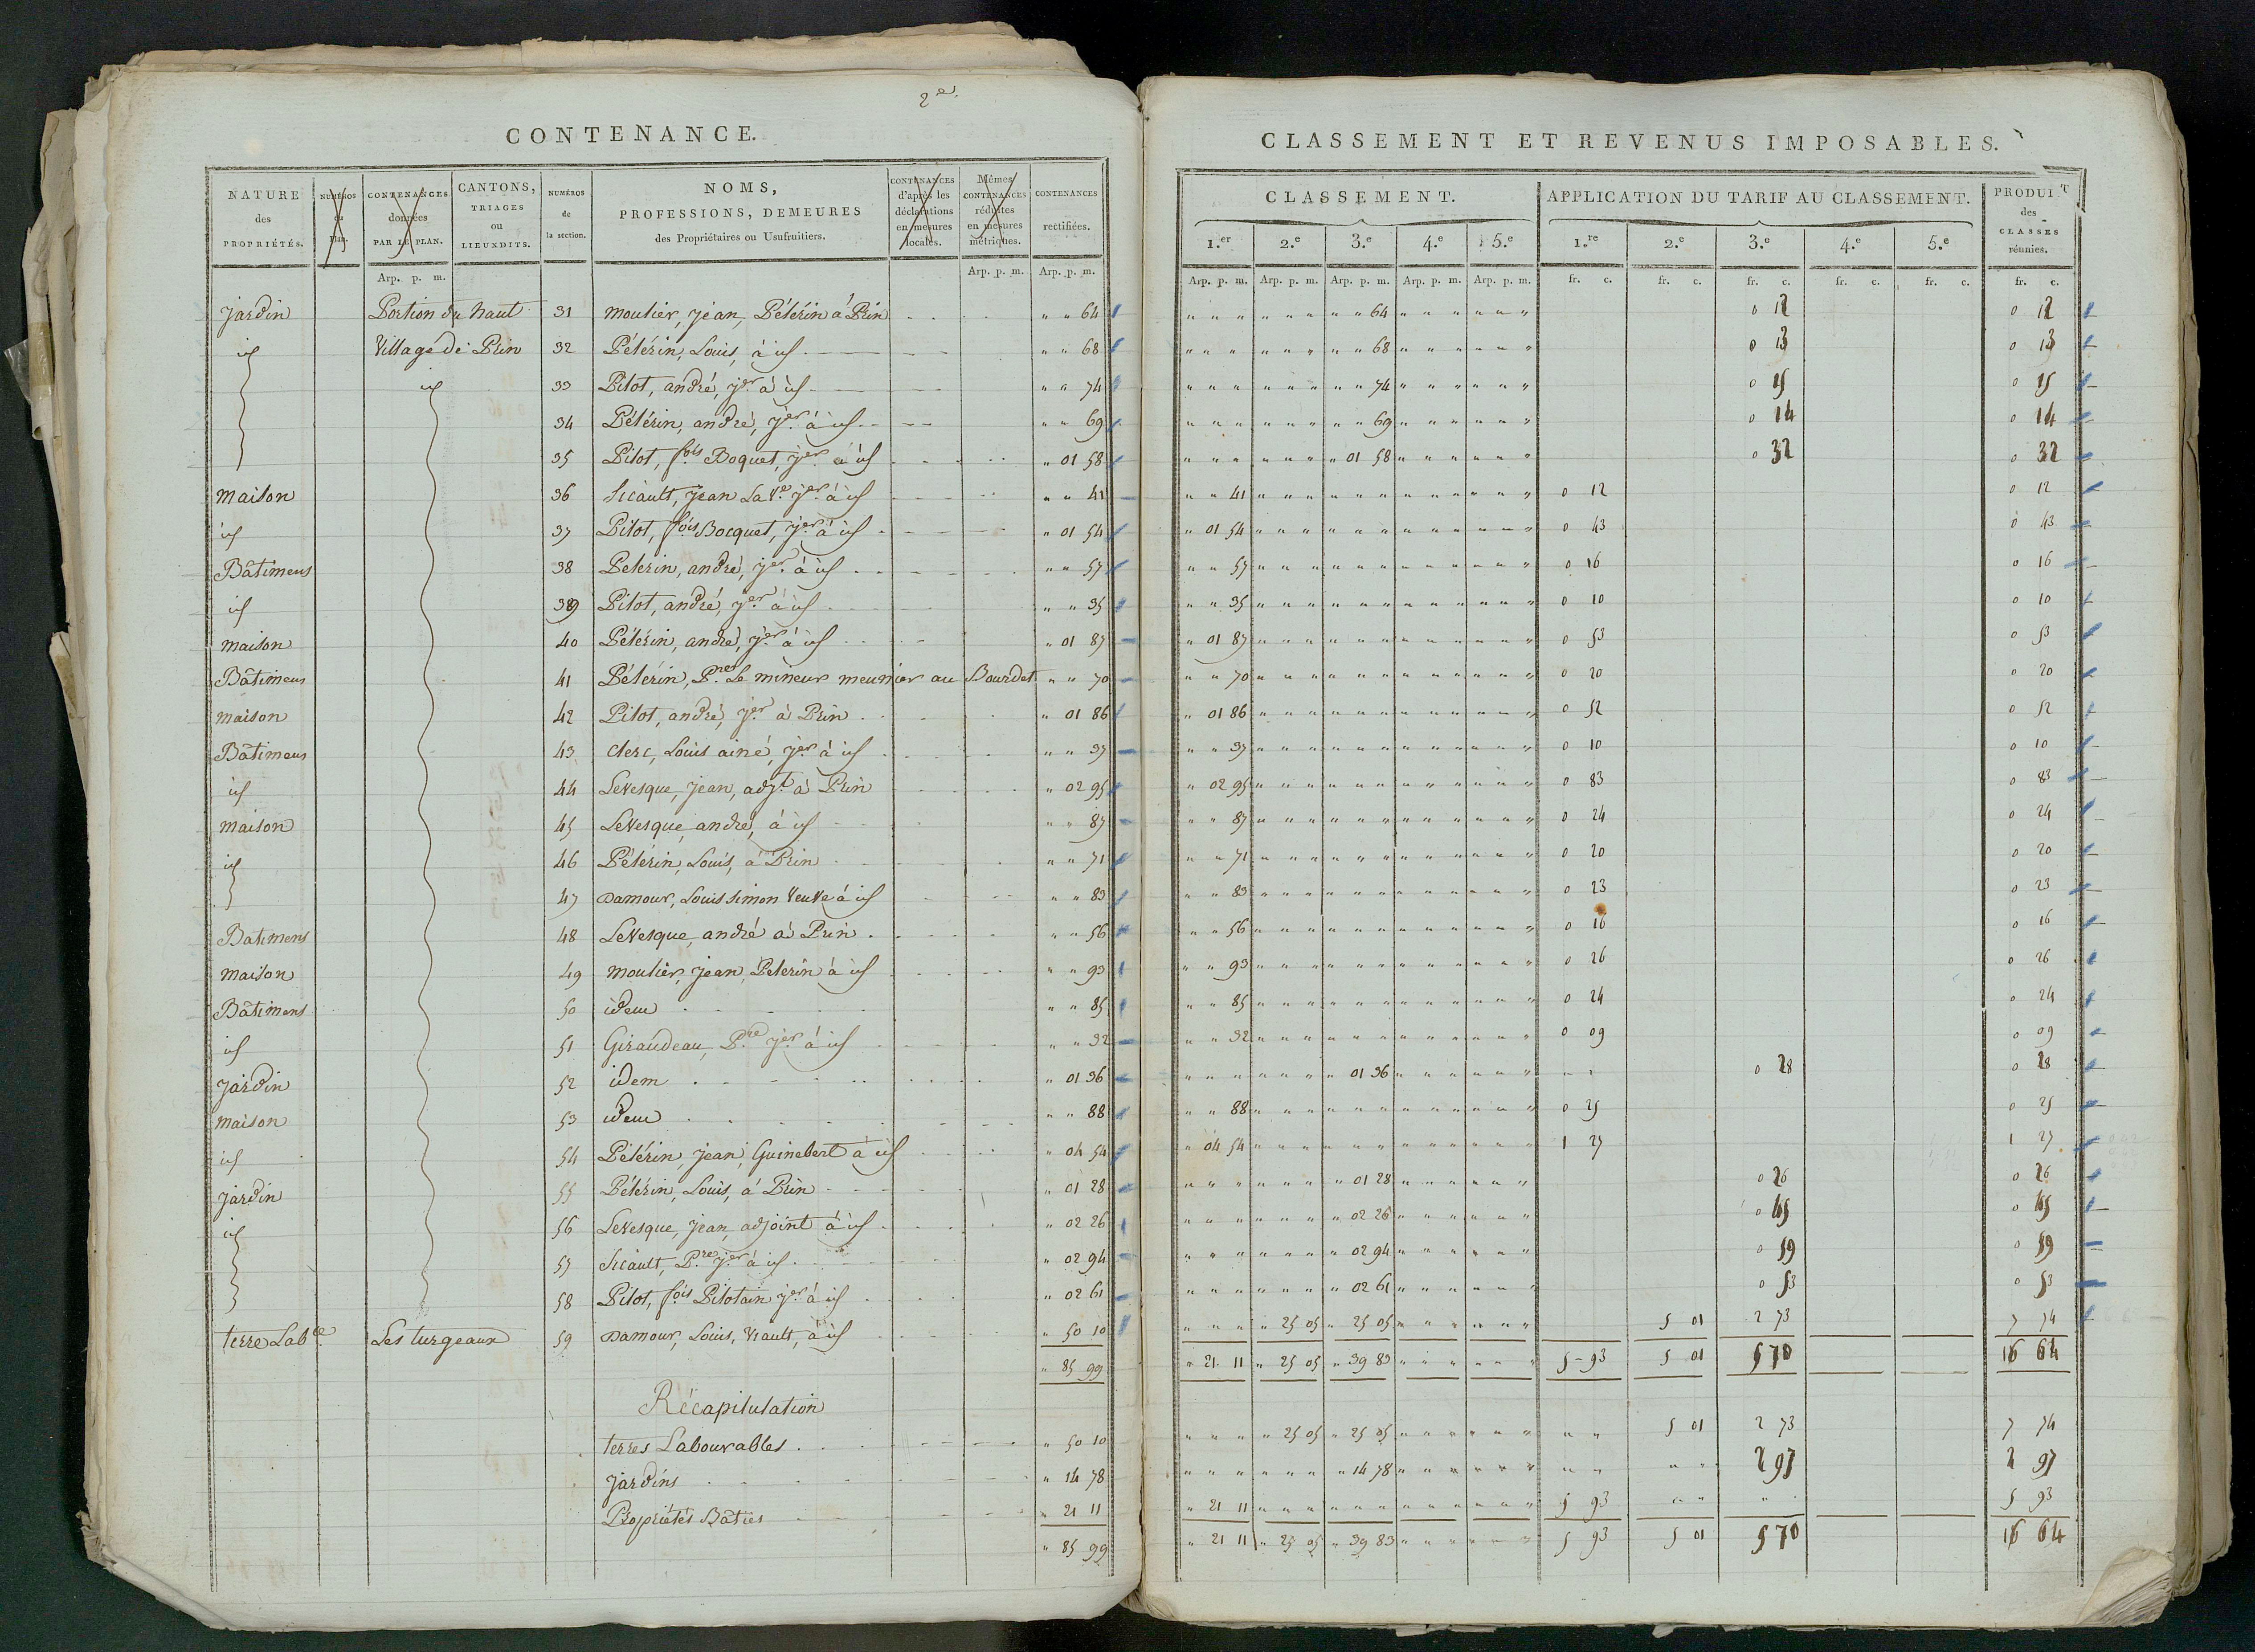 2e.
CONTENANCE.
NATURE des PROPRIÉTÉS. NUMÉROS du Plan. CONTENANCES données PAR LE PLAN. CANTONS, TRIAGES OU LIEUXDITS. NUMÉROS de la section. NOMS, PROFESSIONS, DEMEURES des Propriétaires ou Usufruitiers. CONTENANCES d'après les déclarations en mesures locales. Mêmes CONTENANCES réduites en mesures métriques. CONTENANCES rectifiées.
Arp. p. m. Arp. p. m. Arp. p. m.
jardin Portion du haut 31 moulier, jean, Pélérin à Prin " " 64
id Village de Prin 32 Pélérin, Louis, à id " " 68
id 33 Pilot, andré, jer à id " " 74
34 Pélérin, andré, jer à id " " 69
35 Pilot, fois Boquet, jer à id " 01 58
maison 36 Sicault, jean La Ve jer à id " " 41
id 37 Pilot, fois Bocquet, jer à id " 01 54
Bâtimens 38 Pelerin, andré, jer à id " " 57
id 39 Pilot, andré, jer à id " " 35
maison 40 Pélérin, andré, jer à id " 01 87
Bâtimens 41 Pélérin, Pre Le mineur meunier au Bourdet " " 70
maison 42 Pilot, andré, jer à Prin " 01 86
Bâtimens 43 Clerc, Louis ainé, jer à id " " 37
id 44 Levesque, jean, adjt à Prin " 02 95
maison 45 Levesque, andré, à id " " 87
id 46 Pélérin, Louis, à Prin " " 71
47 Damour, Louis simon Veuve à id " " 83
Batimens 48 Levesque, andré à Prin " " 56
maison 49 moulier, jean, Pelerin à id " " 93
Bâtimens 50 idem " " 85
id 51 Giraudeau, Pre jer à id " " 32
jardin 52 idem " 01 36
maison 53 idem " " 88
id 54 Pélérin, jean, Guinebert à id " 04 54
jardin 55 Pélérin, Louis, à Prin " 01 28
id 56 Levesque, jean, adjoint à id " 02 26
57 Sicault, Pre jer à id " 02 94
58 Pilot, fois Pilotain jer à id " 02 61
terre Lable Les turgeaux 59 Damour, Louis, Viault, à id " 50 10
" 85 99
Récapitulation
terres Labourables " 50 10
jardins " 14 78
Propriétés Bâties " 21 11
" 85 99
CLASSEMENT ET REVENUS IMPOSABLES.
CLASSEMENT. APPLICATION DU TARIF AU CLASSEMENT. PRODUIT des CLASSES réunies.
1.er 2.e 3.e 4.e 5.e 1.re 2.e 3.e 4.e 5.e
Arp. p. m. Arp. p. m. Arp. p. m. Arp. p. m. Arp. p. m. fr. c. fr. c. fr. c. fr. c. fr. c. fr. c.
" " 64 0 12 0 12
" " 68 0 13 0 13
" " 74 0 15 0 15
" " 69 0 14 0 14
" 01 58 0 32 0 32
" " 41 0 12 0 12
" 01 54 0 43 0 43
" " 57 0 16 0 16
" " 35 0 10 0 10
" 01 87 0 53 0 53
" " 70 0 20 0 20
" 01 86 0 52 0 52
" " 37 0 10 0 10
" 02 95 0 83 0 83
" " 87 0 24 0 24
" " 71 0 20 0 20
" " 83 0 23 0 23
" " 56 0 16 0 16
" " 93 0 26 0 26
" " 85 0 24 0 24
" " 32 0 09 0 09
" 01 36 0 28 0 28
" " 88 0 25 0 25
" 04 54 1 27 1 27
" 01 28 0 26 0 26
" 02 26 0 45 0 45
" 02 94 0 59 0 59
" 02 61 0 53 0 53
" 25 05 " 25 05 5 01 2 73 7 74
" 21 11 " 25 05 " 39 83 5 93 5 01 5 70 16 64
" 25 05 " 25 05 5 01 2 73 7 74
" 14 78 2 97 2 97
" 21 11 5 93 5 93
" 21 11 " 25 05 " 39 83 5 93 5 01 5 70 16 64